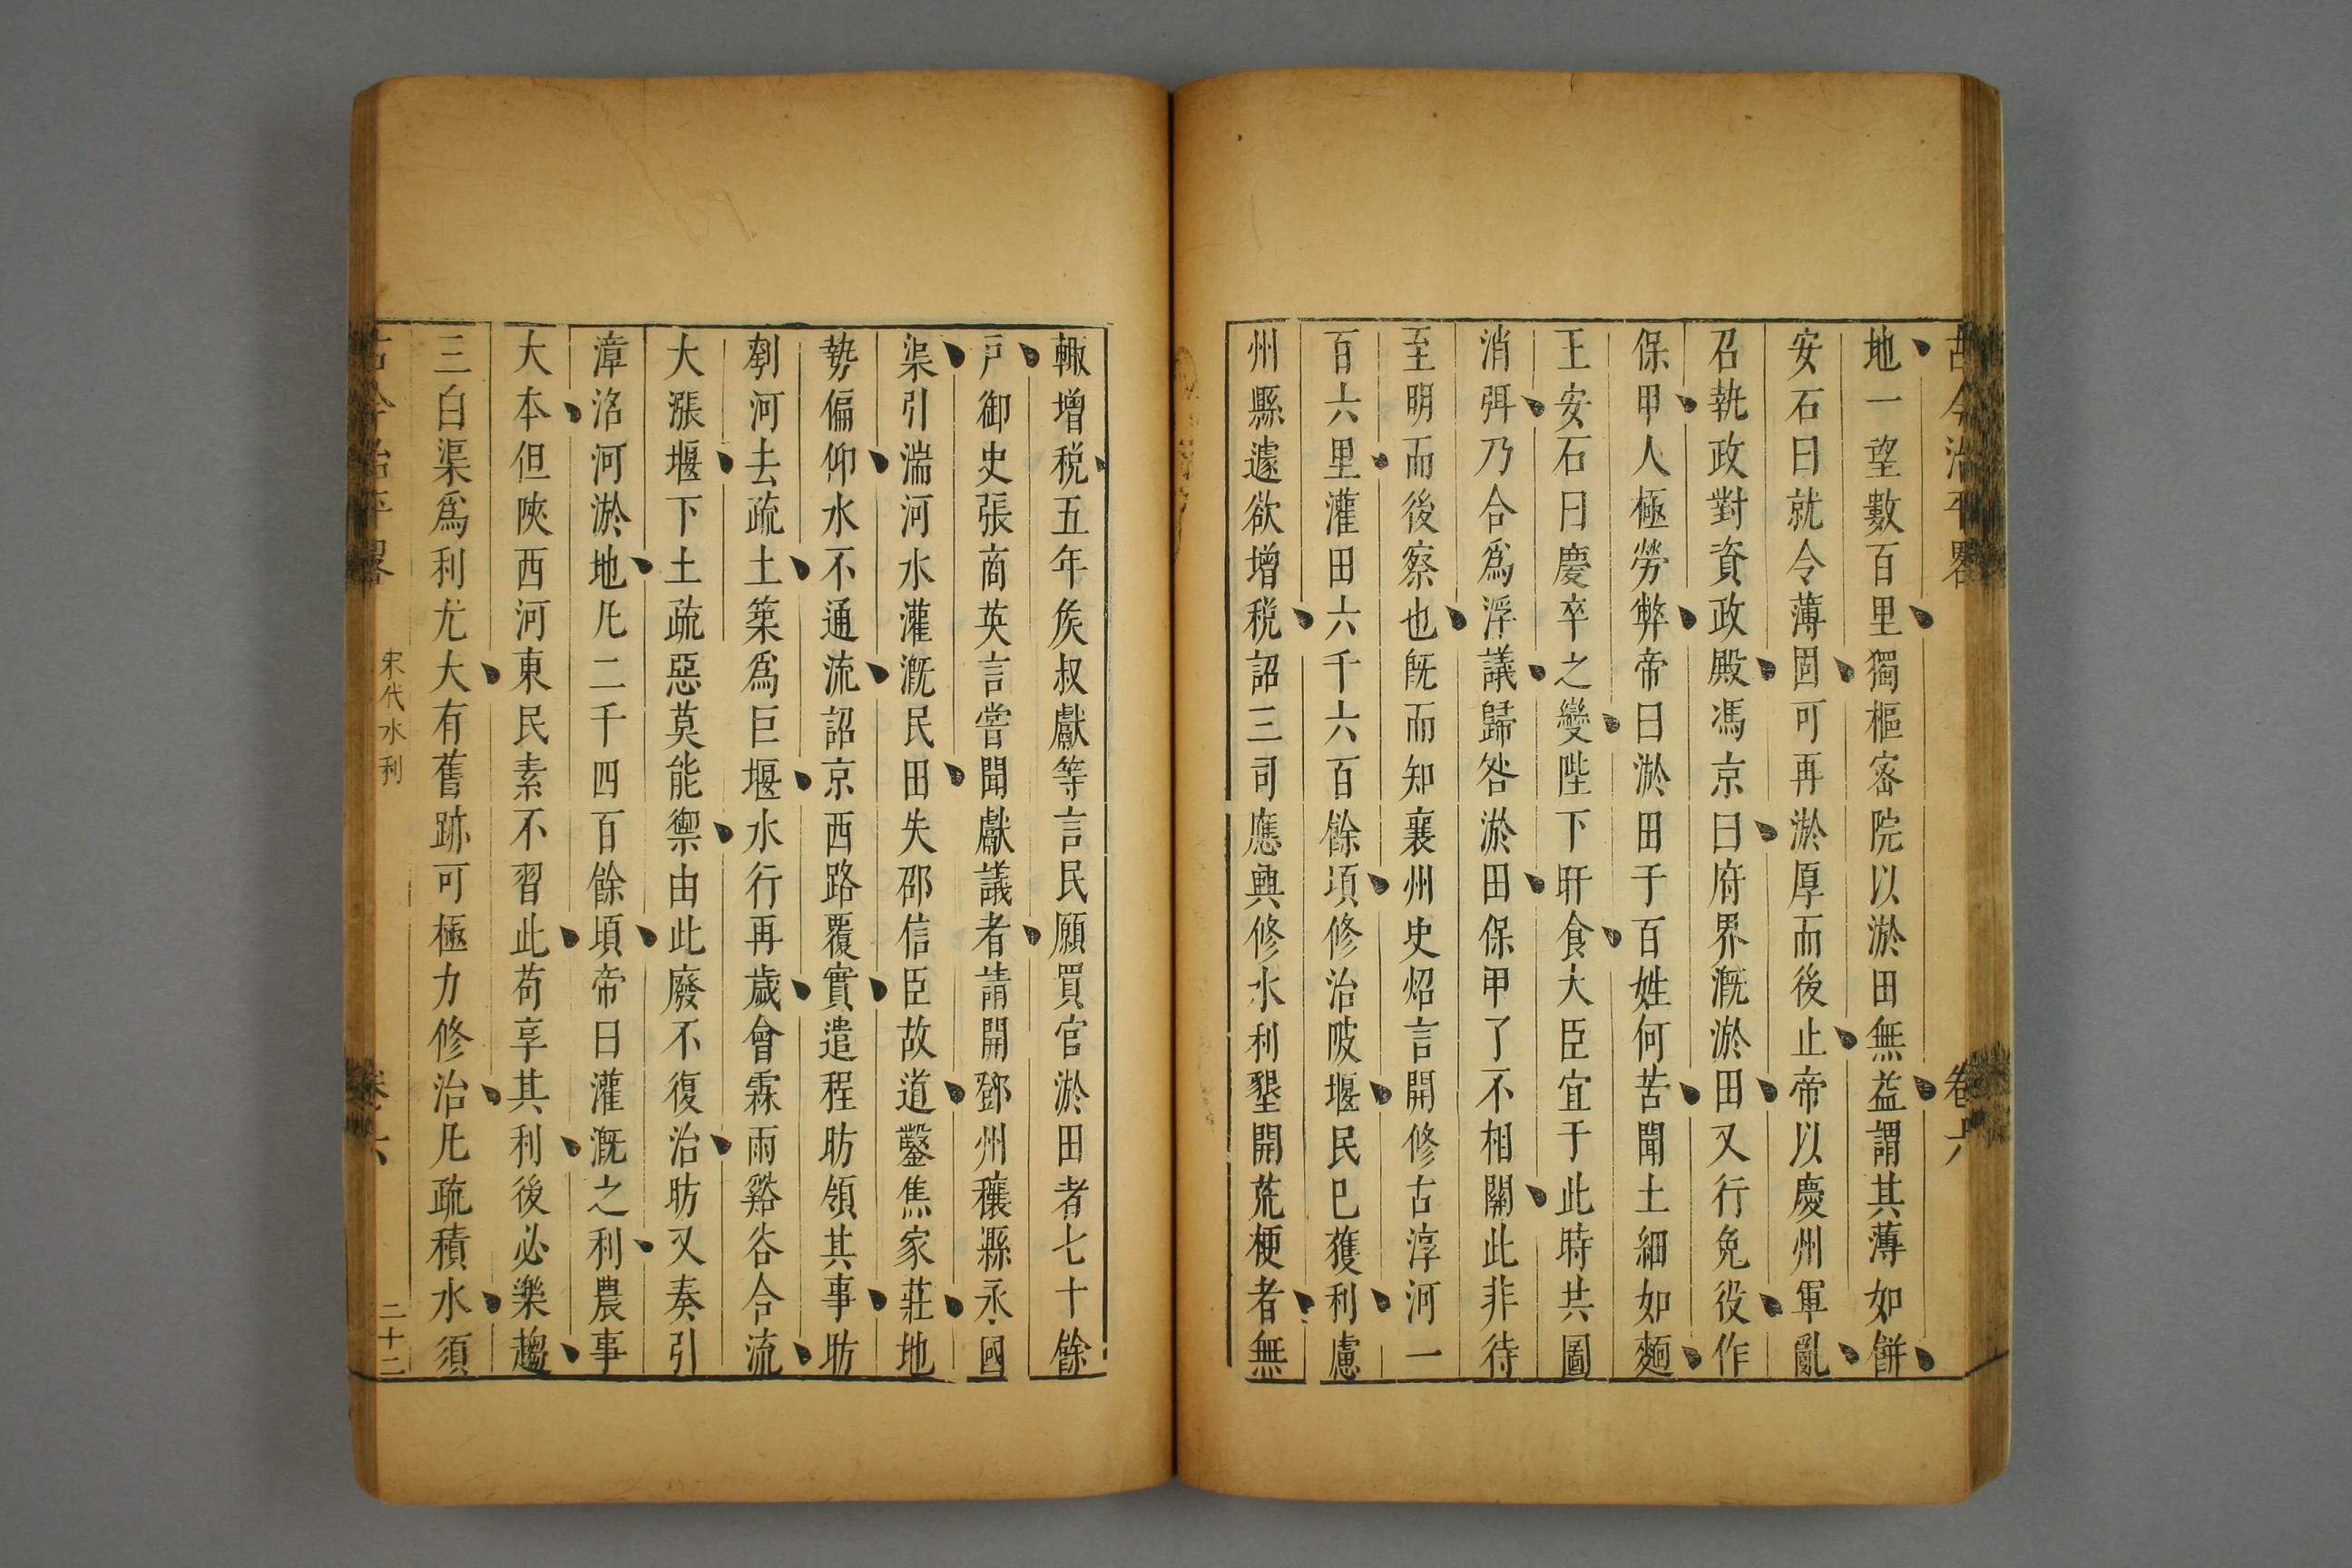 古今治平畧 卷六
地一望數百里獨樞密院以淤田無益謂其薄如餅
安石曰就令薄固可再淤厚而後止帝以慶州軍亂
召執政對資政殿馮京曰府界漑淤田又行免役作
保甲人極勞弊帝曰淤田于百姓何苦聞土細如麵
王安石曰慶卒之變陛下旰食大臣宜于此時共圖
消弭乃合爲浮議歸咎淤田保甲了不相關此非待
至明而後察也旣而知襄州史炤言開修古淳河一
百六里灌田六千六百餘頃修治陂堰民已獲利慮
州縣遽欲增稅詔三司應興修水利墾開荒梗者無
輙增稅五年矦叔獻等言民願買官淤田者七十餘
戸御史張商英言嘗聞獻議者請開鄧州穰縣永國
渠引湍河水灌漑民田失邵信臣故道鑿焦家莊地
勢偏仰水不通流詔京西路覆實遣程昉領其事昉
刳河去疏土築爲巨堰水行再歲會霖雨谿谷合流
大漲堰下土疏惡莫能禦由此廢不復治昉又奏引
漳洺河淤地凢二千四百餘頃帝曰灌漑之利農事
大本但陝西河東民素不習此苟享其利後必樂趨
三白渠爲利尤大有舊跡可極力修治凢疏積水須
古今治平畧 宋代水利 卷六 二十二